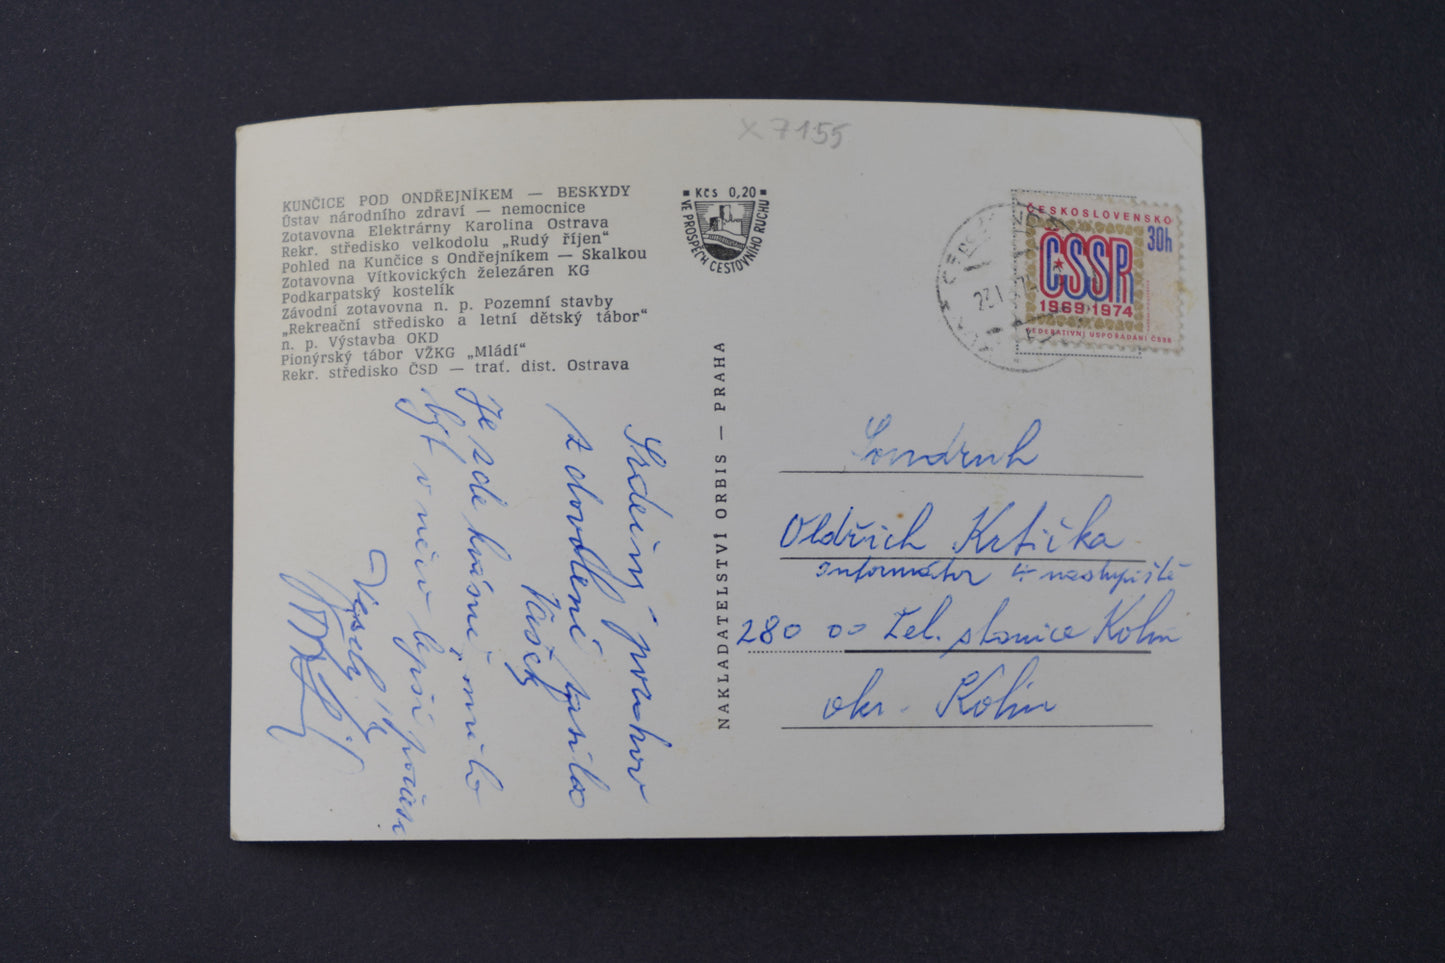 x 7155
KUNČICE POD ONDŘEJNÍKEM — BESKYDY
Ústav národního zdraví — nemocnice
Zotavovna Elektrárny Karolina Ostrava
Rekr. středisko velkodolu „Rudý říjen“
Pohled na Kunčice s Ondřejníkem — Skalkou
Zotavovna Vítkovických železáren KG
Podkarpatský kostelík
Závodní zotavovna n. p. Pozemní stavby
„Rekreační středisko a letní dětský tábor“
n. p. Výstavba OKD
Pionýrský tábor VŽKG „Mládí“
Rekr. středisko ČSD — trať. dist. Ostrava
Kčs 0,20
VE PROSPĚCH CESTOVNÍHO RUCHU
NAKLADATELSTVÍ ORBIS — PRAHA
ČESKOSLOVENSKO
30h
ČSSR
1969-1974
FEDERATIVNÍ USPOŘÁDÁNÍ ČSSR
Srdečný pozdrav
z dovolené posílá
Vašek
Je zde krásně, mělo
být v něco lepší počasí
Veselý
Soudruh
Oldřich Krtička
Informátor 4 nástupiště
280 00 Žel. stanice Kolín
okr. Kolín